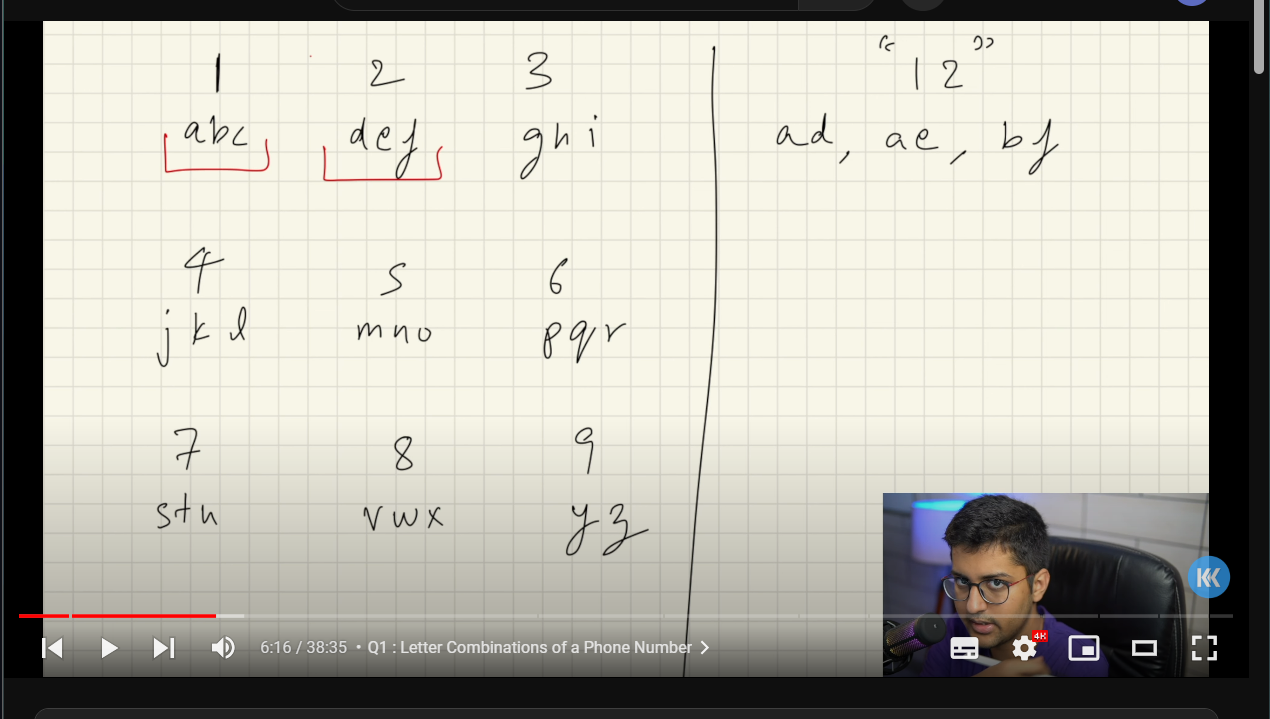 1 2 3
abc def ghi
4 5 6
jkl mno pqr
7 8 9
stu vwx yz
"12"
ad, ae, bf
4K
6:16 / 38:35 • Q1 : Letter Combinations of a Phone Number